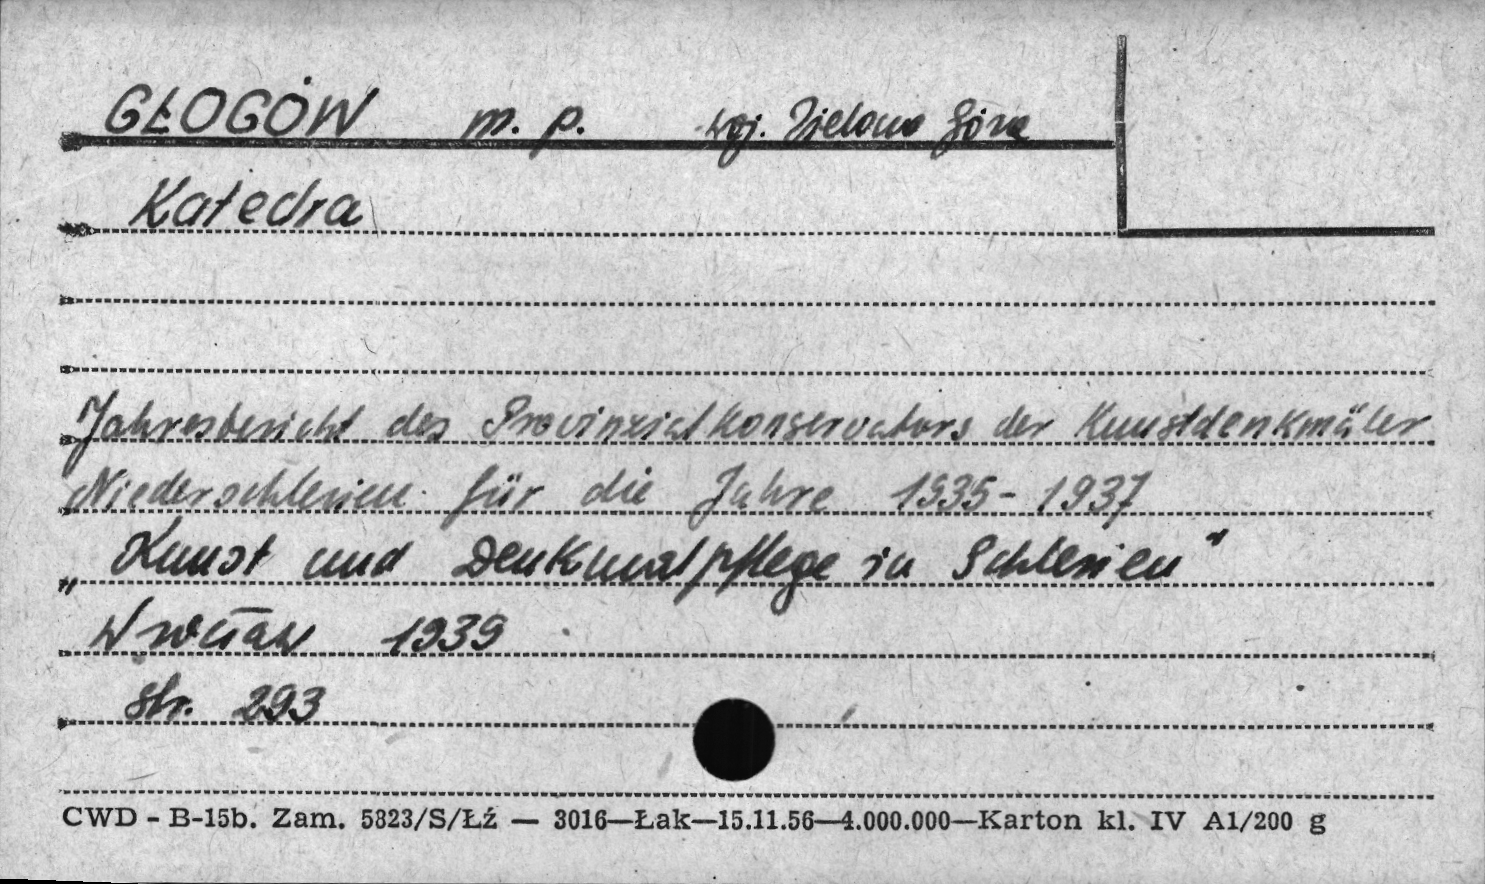 GŁOGÓW m. p. woj. Zielona Góra
Katedra
Jahresbericht des Provinzialkonservators der Kunstdenkmäler
Niederschlesien für die Jahre 1935-1937
„Kunst und Denkmalpflege in Schlesien"
Wrocław 1939
str. 293
CWD - B-15b. Zam. 5823/S/Łź — 3016—Łak—15.11.56—4.000.000—Karton kl. IV A1/200 g